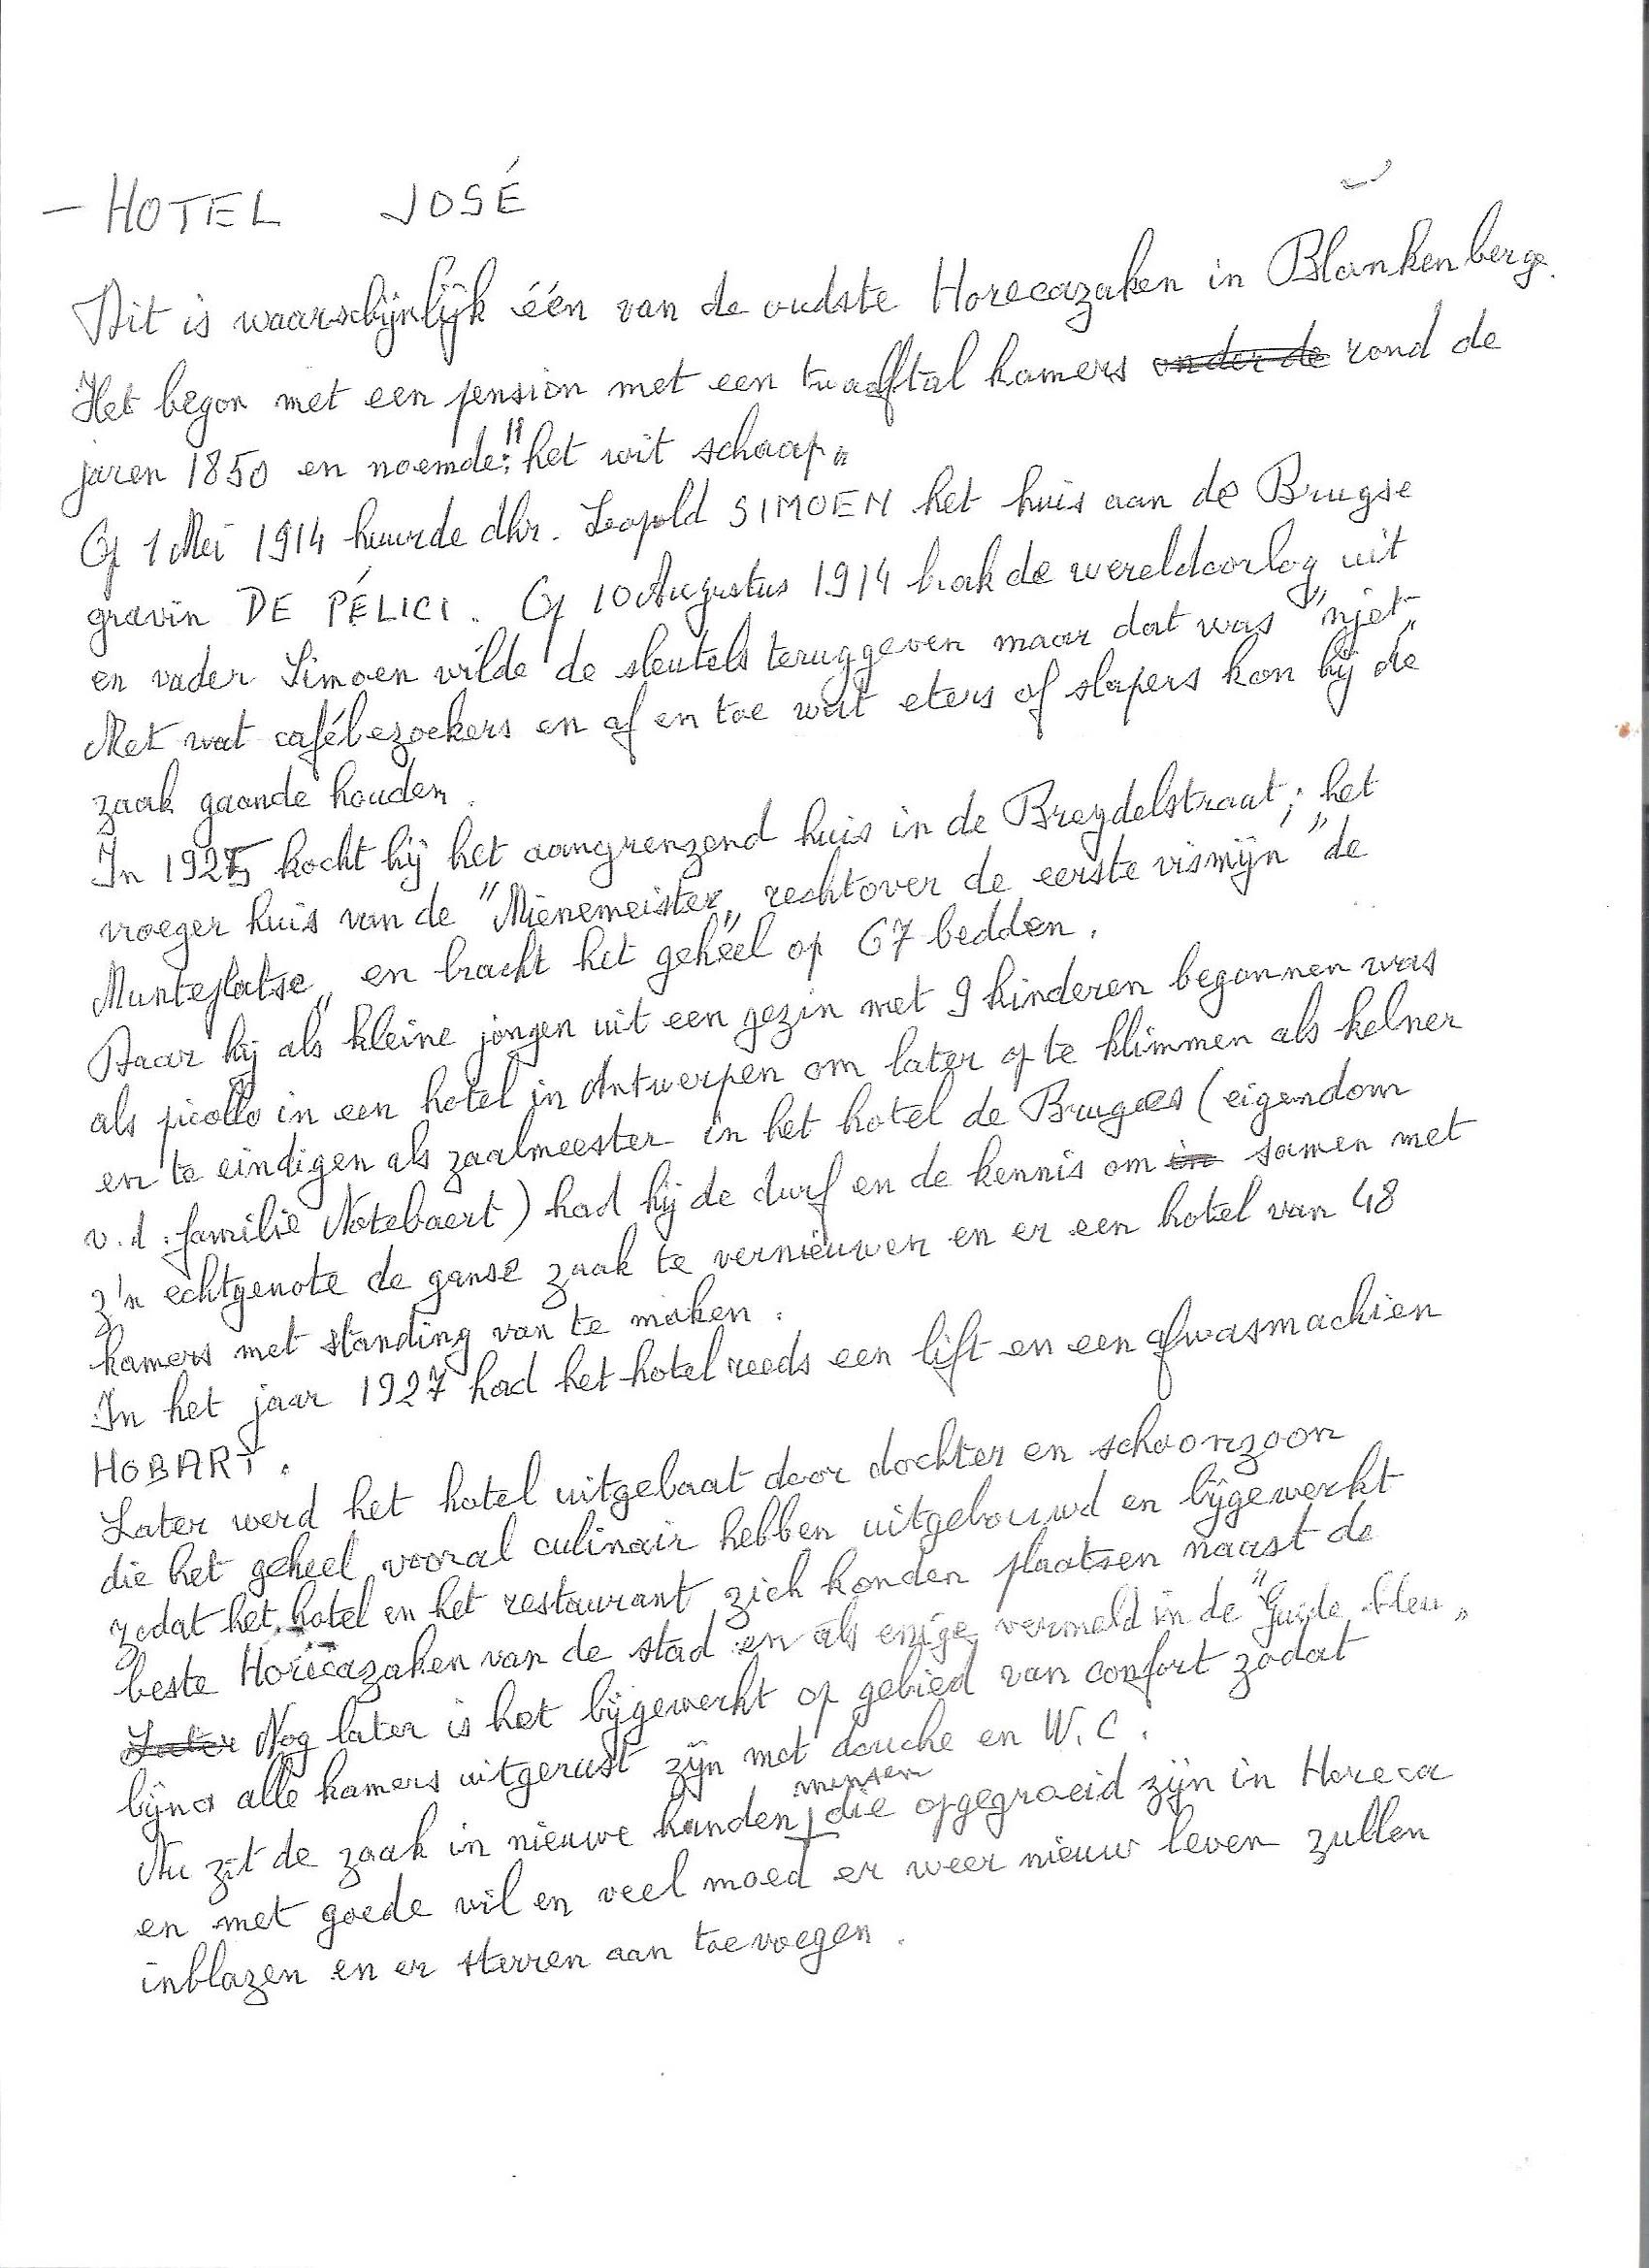 - HOTEL JOSÉ
Dit is waarschijnlijk één van de oudste Horecazaken in Blankenberge.
Het begon met een pension met een twaalftal kamers onder de rond de
jaren 1850 en noemde: "het wit schaap"
Op 1 Mei 1914 huurde dhr. Leopold SIMOEN het huis aan de Brugse
gravin DE PÉLICI. Op 10 Augustus 1914 brak de wereldoorlog uit
en vader Simoen wilde de sleutels teruggeven maar dat was "njet"
Met wat cafébezoekers en af en toe wat eters of slapers kon hij de
zaak gaande houden.
In 1925 kocht hij het aangrenzend huis in de Breydelstraat; het
vroeger huis van de "Mienemeister" rechtover de eerste vismijn "de
Munteplatse" en bracht het geheel op 67 bedden.
Daar hij als kleine jongen uit een gezin met 9 kinderen begonnen was
als picollo in een hotel in Antwerpen om later op te klimmen als kelner
en te eindigen als zaalmeester in het hotel de Bruges (eigendom
v.d. familie Notebaert) had hij de durf en de kennis om in samen met
z'n echtgenote de ganse zaak te vernieuwen en er een hotel van 48
kamers met standing van te maken.
In het jaar 1927 had het hotel reeds een lift en een afwasmachien
HOBART.
Later werd het hotel uitgebaat door dochter en schoonzoon
die het geheel vooral culinair hebben uitgebouwd en bijgewerkt
zodat het hotel en het restaurant zich konden plaatsen naast de
beste Horecazaken van de stad en als enige vermeld in de "Guide bleu"
Later Nog later is het bijgewerkt op gebied van confort zodat
bijna alle kamers uitgerust zijn met douche en W.C.
mensen
Nu zit de zaak in nieuwe handen, die opgegroeid zijn in Horeca
en met goede wil en veel moed er weer nieuw leven zullen
inblazen en er sterren aan toevoegen.